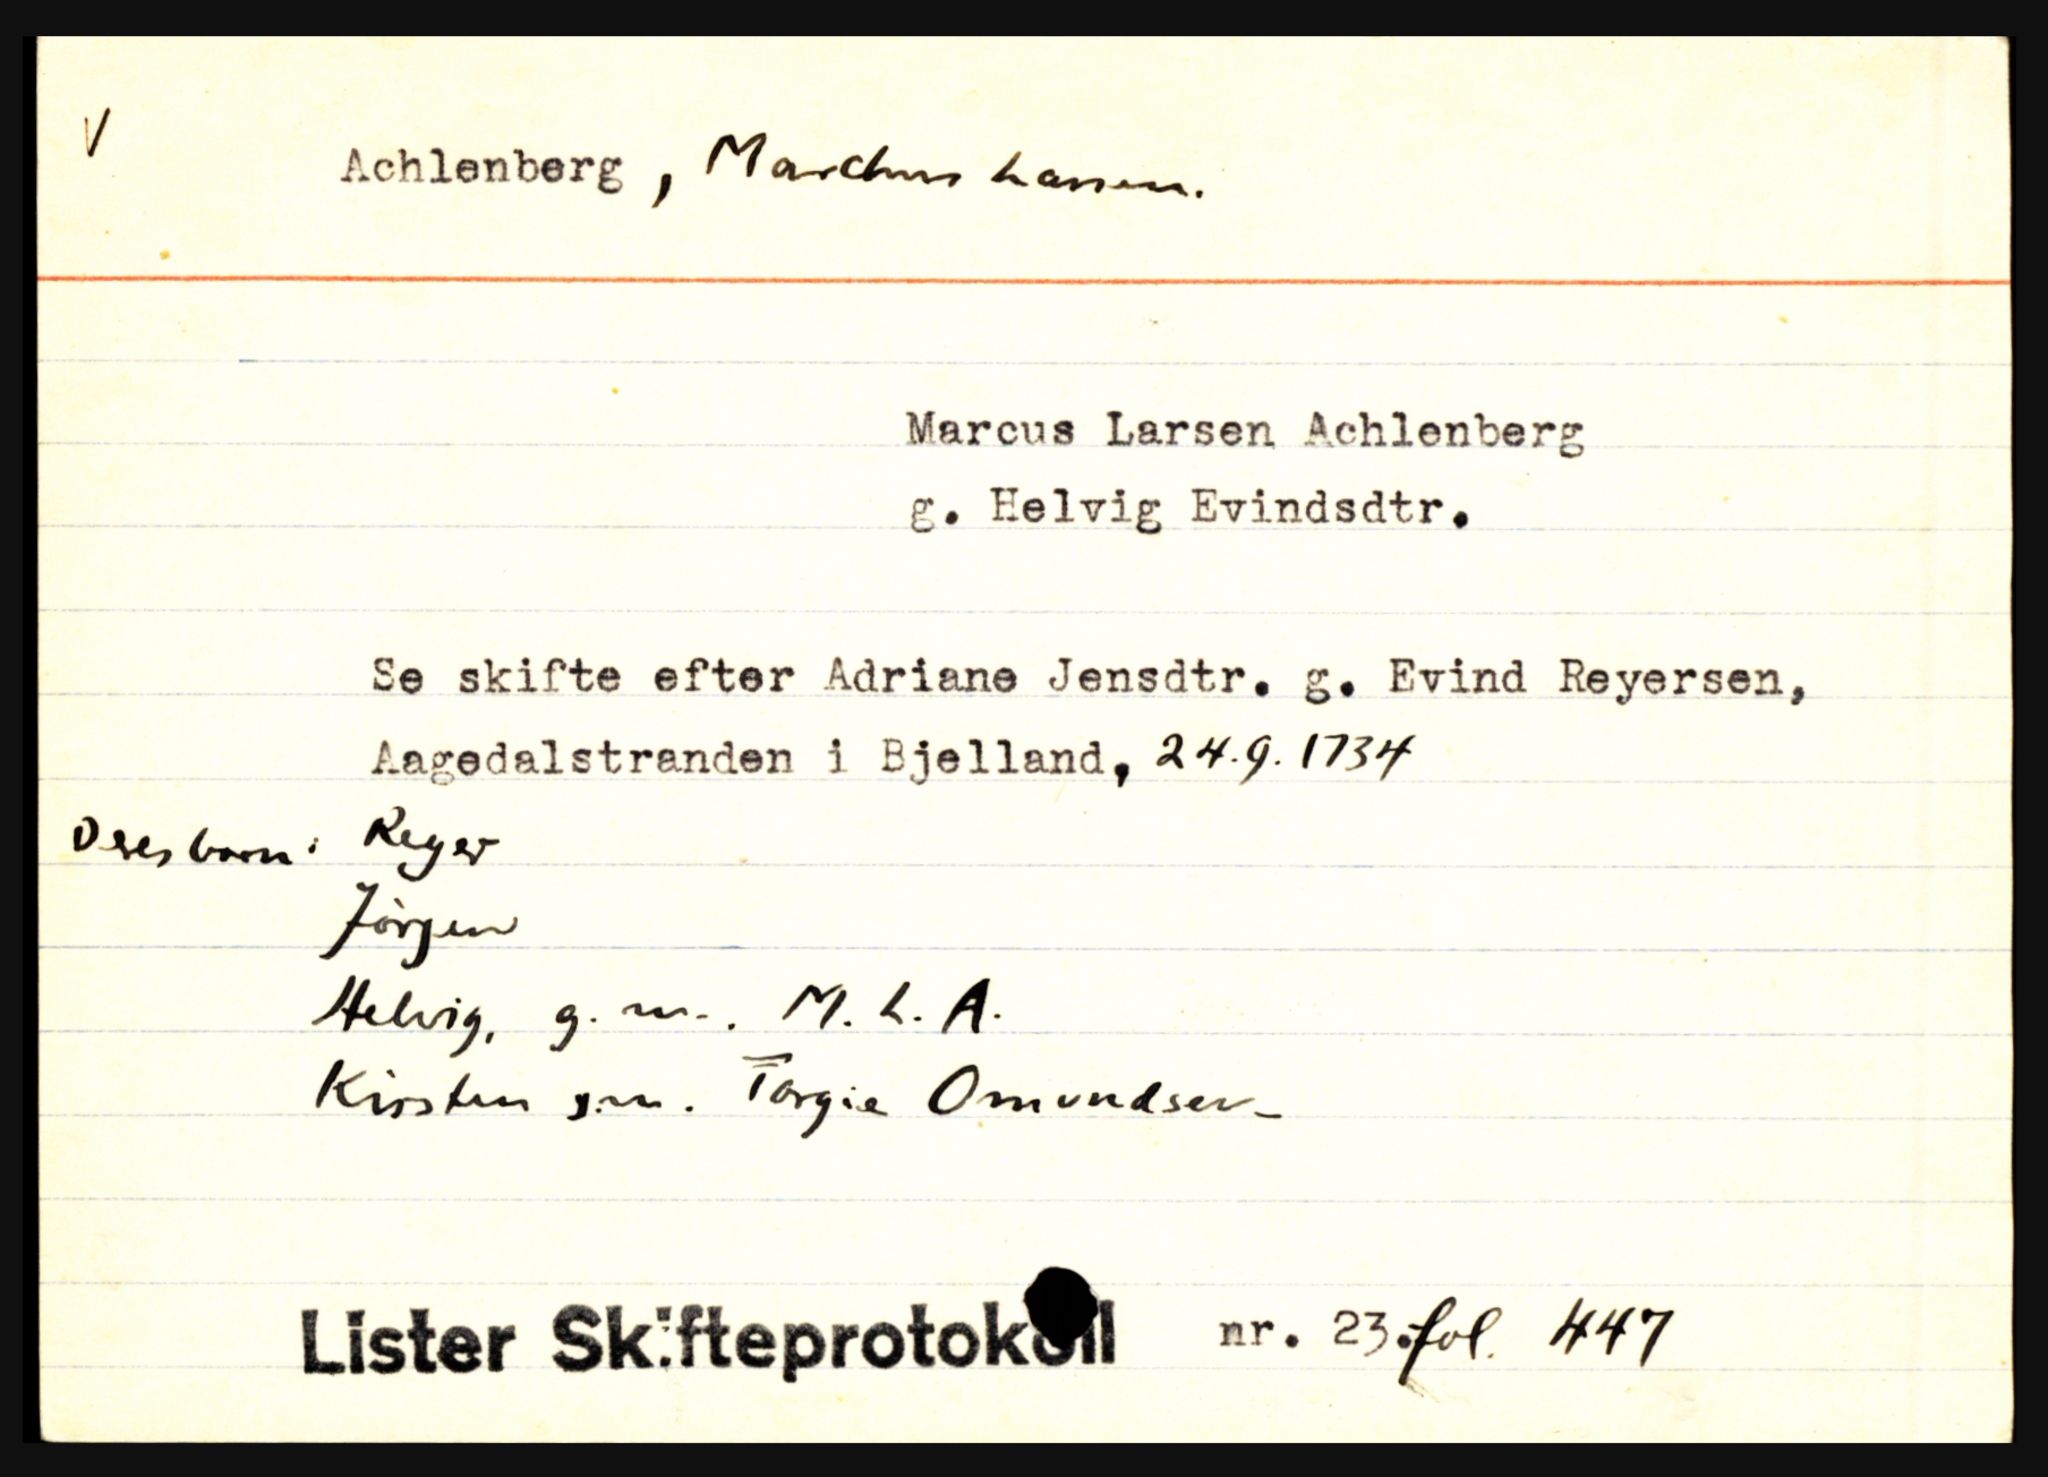 V
Achlenberg, Marchus Larsen.
Marcus Larsen Achlenberg
g. Helvig Evindsdtr.
Se skifte efter Adriane Jensdtr. g. Evind Reyersen,
Aagedalstranden i Bjelland, 24.9.1734
Deres born: Reyer
Jörgen
Helvig, g.m. M. L. A.
Kirsten g.m. Torgie Omundsen
Lister Skifteprotokoll nr. 23. fol. 447